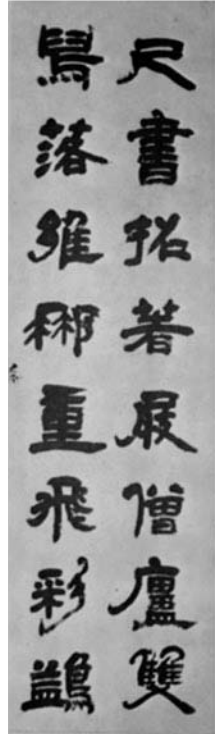 尺書招著屐僧廬雙
舄落維重飛彩鷁